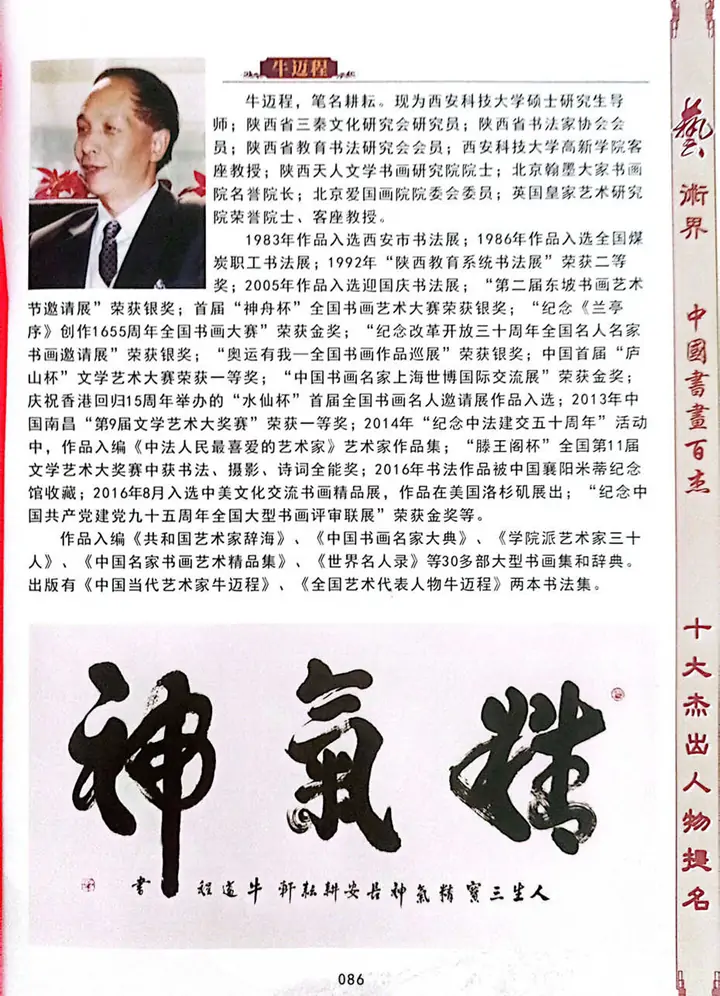 牛迈程
牛迈程，笔名耕耘。现为西安科技大学硕士研究生导
师；陕西省三秦文化研究会研究员；陕西省书法家协会会
员；陕西省教育书法研究会会员；西安科技大学高新学院客
座教授；陕西天人文学书画研究院院士；北京翰墨大家书画
院名誉院长；北京爱国画院院委会委员；英国皇家艺术研究
院荣誉院士、客座教授。
1983年作品入选西安市书法展；1986年作品入选全国煤
炭职工书法展；1992年“陕西教育系统书法展”荣获二等
奖；2005年作品入选迎国庆书法展；“第二届东坡书画艺术
节邀请展”荣获银奖；首届“神舟杯”全国书画艺术大赛荣获银奖；“纪念《兰亭
序》创作1655周年全国书画大赛”荣获金奖；“纪念改革开放三十周年全国名人名家
书画邀请展”荣获银奖；“奥运有我—全国书画作品巡展”荣获银奖；中国首届“庐
山杯”文学艺术大赛荣获一等奖；“中国书画名家上海世博国际交流展”荣获金奖；
庆祝香港回归15周年举办的“水仙杯”首届全国书画名人邀请展作品入选；2013年中
国南昌“第9届文学艺术大奖赛”荣获一等奖；2014年“纪念中法建交五十周年”活动
中，作品入编《中法人民最喜爱的艺术家》艺术家作品集；“滕王阁杯”全国第11届
文学艺术大奖赛中获书法、摄影、诗词全能奖；2016年书法作品被中国襄阳米芾纪念
馆收藏；2016年8月入选中美文化交流书画精品展，作品在美国洛杉矶展出；“纪念中
国共产党建党九十五周年全国大型书画评审联展”荣获金奖等。
作品入编《共和国艺术家辞海》、《中国书画名家大典》、《学院派艺术家三十
人》、《中国名家书画艺术精品集》、《世界名人录》等30多部大型书画集和辞典。
出版有《中国当代艺术家牛迈程》、《全国艺术代表人物牛迈程》两本书法集。
精氣神
人生三寶精氣神長安耕耘軒牛邁程書
086
藝術界
中國書畫百杰
十大杰出人物提名